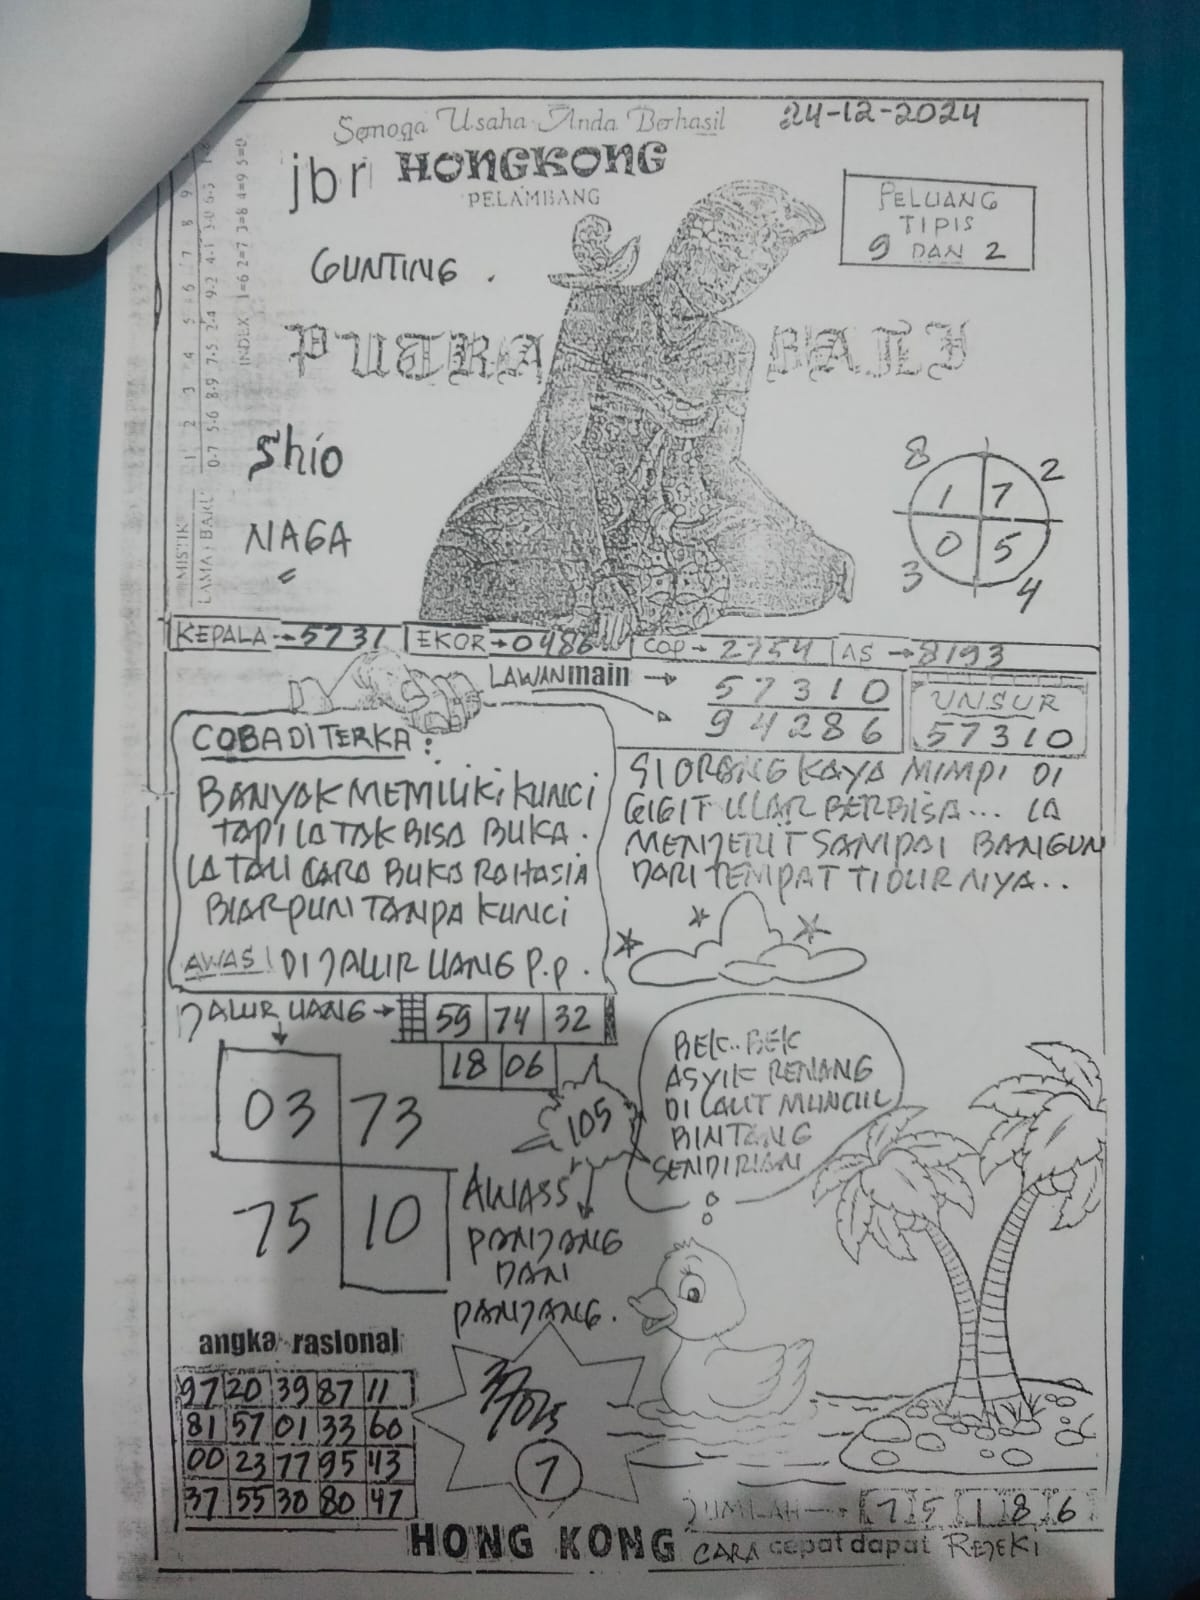 Semoga Usaha Anda Berhasil
24-12-2024
jbr HONGKONG
PELAMBANG
PELUANG
TIPIS
9 DAN 2
GUNTING .
PUTRA BALI
Shio
NAGA
MISTIK
LAMA BARU
INDEX 1=6 2=7 3=8 4=9 5=0
1 2 3 4 5 6 7 8 9
0-7 5-6 8-9 7-5 2-4 9-2 4-1 3-0 6-3
8 2
1 7
0 5
3 4
KEPALA → 5731 EKOR → 0486 COP → 2754 AS → 8193
LAWAN main → 57310
94286
UNSUR
57310
COBA DI TERKA :
BANYAK MEMILIKI KUNCI
TAPI IA TAK BISA BUKA.
IA TAU CARA BUKA RAHASIA
BIARPUN TANPA KUNCI
AWAS! DI JALUR UANG P.P.
SI ORANG KAYA MIMPI DI
GIGIT ULAR BERBISA... IA
MENJERIT SAMPAI BANGUN
DARI TEMPAT TIDURNYA..
JALUR UANG → 59 74 32
18 06
03 73
75 10
105
AWASS
PANJANG
DAN
PANJANG.
BEK..BEK
ASYIK RENANG
DI LAUT MUNCUL
BINTANG
SENDIRIAN
angka rasional
97 20 39 87 11
81 57 01 33 60
00 23 77 95 43
37 55 30 80 47
7
JUMLAH → 7 5 1 8 6
HONG KONG CARA cepat dapat REJEKI